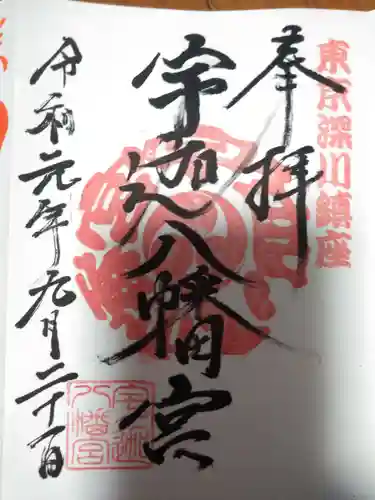 東京深川鎮座
奉拝
宇迦八幡宮
令和元年九月二十一日
宇迦八幡宮